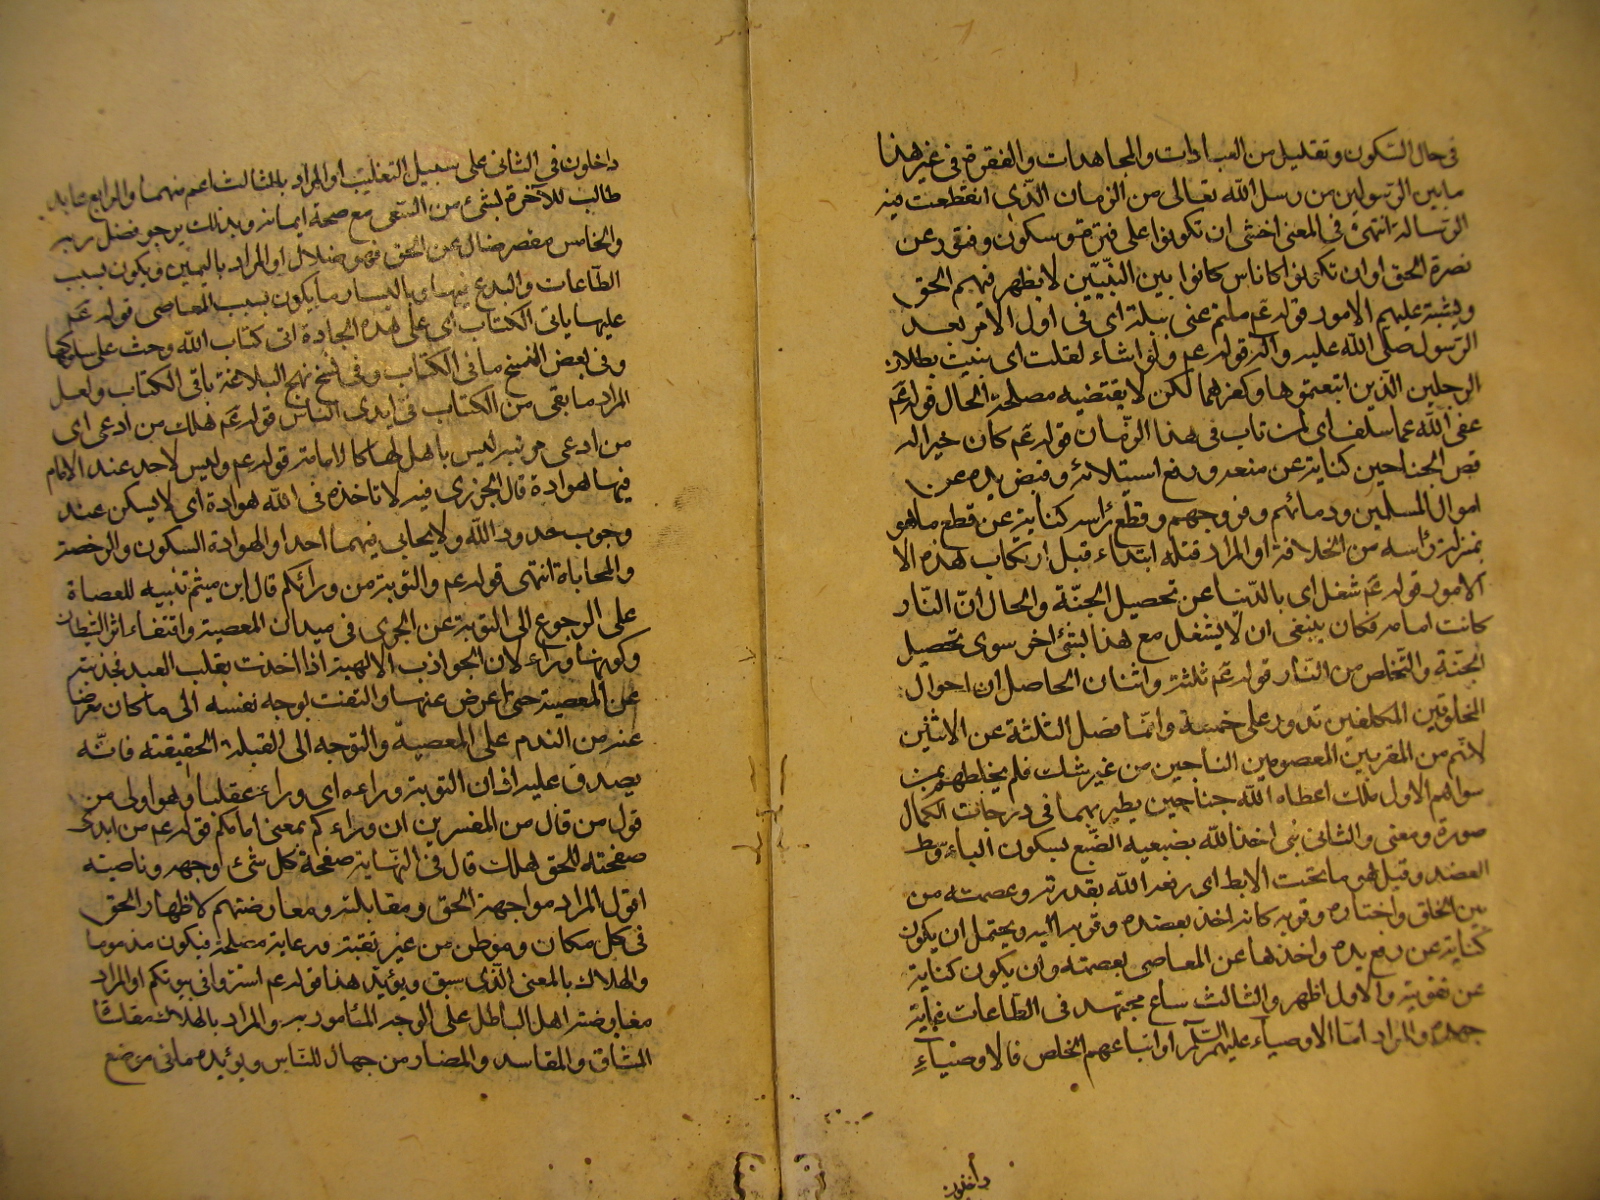 في حال السكون وتقليل من العبادات والمجاهدات والفترة في غير هذا
ما بين الرسولين من رسل الله تعالى من الزمان الذي انقطعت فيه
الرسالة انتهى في المعنى اخشى ان تكونوا على فترة وسكون وفتور عن
نصرة الحق او ان تكونوا كاناس كانوا بين النبيين لا يظهر فيهم الحق
ويشبة عليهم الامور قوله عم ملتم عنى ميلة اى في اول الامر بعد
الرسول صلى الله عليه وآله قوله عم ولو اشاء لقلت اى بينت بطلان
الرجلين الذين اتبعتموها وكفرهما لكن لا يقتضيه مصلحة الحال قوله عم
عفى الله عما سلف اى لمن تاب في هذا الزمان قوله عم كان خيرا له
قص الجناحين كناية عن منعه ورفع استيلائه وقبض يده عن
اموال المسلمين ودمائهم وفروجهم وقطع راسه كناية عن قطع ما هو
بمنزلة رئاسه من الخلافة او المراد قتله ابتداء قبل ارتكاب هذه الا
الامور قوله عم شغل اى بالدنيا عن تحصيل الجنة والحال ان النار
كانت امامه فكان ينبغى ان لا يشغل مع هذا بشئ اخر سوى تحصيل
الجنة والتخلص من النار قوله عم ثلثة واثنان الحاصل ان احوال
المخلوقين المكلفين تدور على خمسة وانما فصل الثلثة عن الاثنين
لانهم من المقربين المعصومين الناجين من غير شك فلم يخلطهم بمن
سواهم الاول ملك اعطاه الله جناحين يطير بهما في درجات الكمال
صورة ومعنى والثانى نبى اخذ الله بضبعيه الضبع بسكون الباء وسط
العضد وقيل هو ما تحت الابط اى رفعه الله بقدرته وعصمته من
بين الخلق واختاره وقربه كانه اخذ بعضده وقربه اليه ويحتمل ان يكون
كناية عن رفع يده واخذها عن المعاصى بعصمته وان يكون كناية
عن تقويته والاول اظهر والثالث ساع مجتهد في الطاعات غاية
جهده والمراد اما الاوصياء عليهم السلم او اتباعهم الخلص فالاوصياء
داخلون
داخلون في الثانى على سبيل التغليب او المراد بالثالث اعم منهما والرابع عابد
طالب للآخرة بشئ من السعى مع صحة ايمانه وبذلك يرجو فضل ربه
والخامس مقصر ضال عن الحق فهو ضلال او المراد باليمين ما يكون بسبب
الطاعات والبدع فيها وباليسار ما يكون بسبب المعاصى قوله عم
عليها ياتى الكتاب اى على هذه الجادة اتى كتاب الله وحث على سلوكها
وفى بعض النسخ ما في الكتاب وفى نسخ نهج البلاغة باقى الكتاب ولعل
المراد ما بقى من الكتاب في ايدى الناس قوله عم هلك من ادعى اى
من ادعى مرتبة ليس باهل لها كالامامة قوله عم وليس لاحد عند الامام
فيها هوادة قال الجزرى فيه لا تاخذه في الله هوادة اى لا يسكن عند
وجوب حدود الله ولا يحابى فيهما احدا والهوادة السكون والرخصة
والمحاباة انتهى قوله عم والتوبة من ورائكم قال ابن ميثم تنبيه للعصاة
على الرجوع الى التوبة عن الجرى في ميدان المعصية واقتفاء اثر الشيطان
وكونها وراء لان الجواذب الالهية اذا اخذت بقلب العبد فجذبته
عن المعصية حتى اعرض عنها والتفت بوجه نفسه الى ما كان معرضا
عنه من الندم على المعصية والتوجه الى القبلة الحقيقته فانه
يصدق عليه اذن ان التوبة وراءه اى وراء عقليا وهو اولى من
قول من قال من المفسرين ان وراءكم بمعنى امامكم قوله عم من ابدى
صفحته للحق هلك قال في النهاية صفحة كل شئ وجهه وناصيته
اقول المراد مواجهة الحق ومقابلته ومعارضتهم كاظهار الحق
في كل مكان وموطن من غير تقية ورعاية مصلحة فيكون مذموما
والهلاك بالمعنى الذى سبق ويؤيد هذا قوله عم استتروا في بيوتكم او المراد
معارضة اهل الباطل على الوجه المامور به والمراد بالهلاك مقاساة
المشاق والمفاسد والمضار من جهال الناس ويؤيده ما في موضع